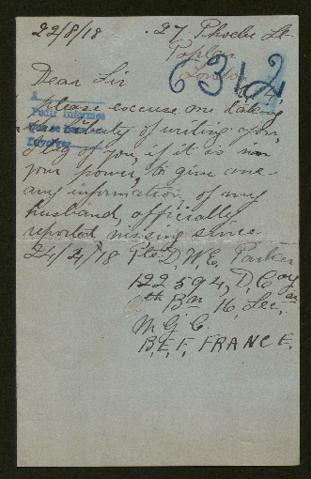 22/8/18 . 27, Phoebe St
Poplar
London
6312
Dear Sir
Please excuse me taking
the liberty of writing you,
I beg of you, if it is in
your power, to give me
any information, of my
husband, officially
reported missing since
24/3/18 Pte D. W. E.
122594, D. Coy
th Bn 16, Sec,
M. G. C.
B.E.F. FRANCE.